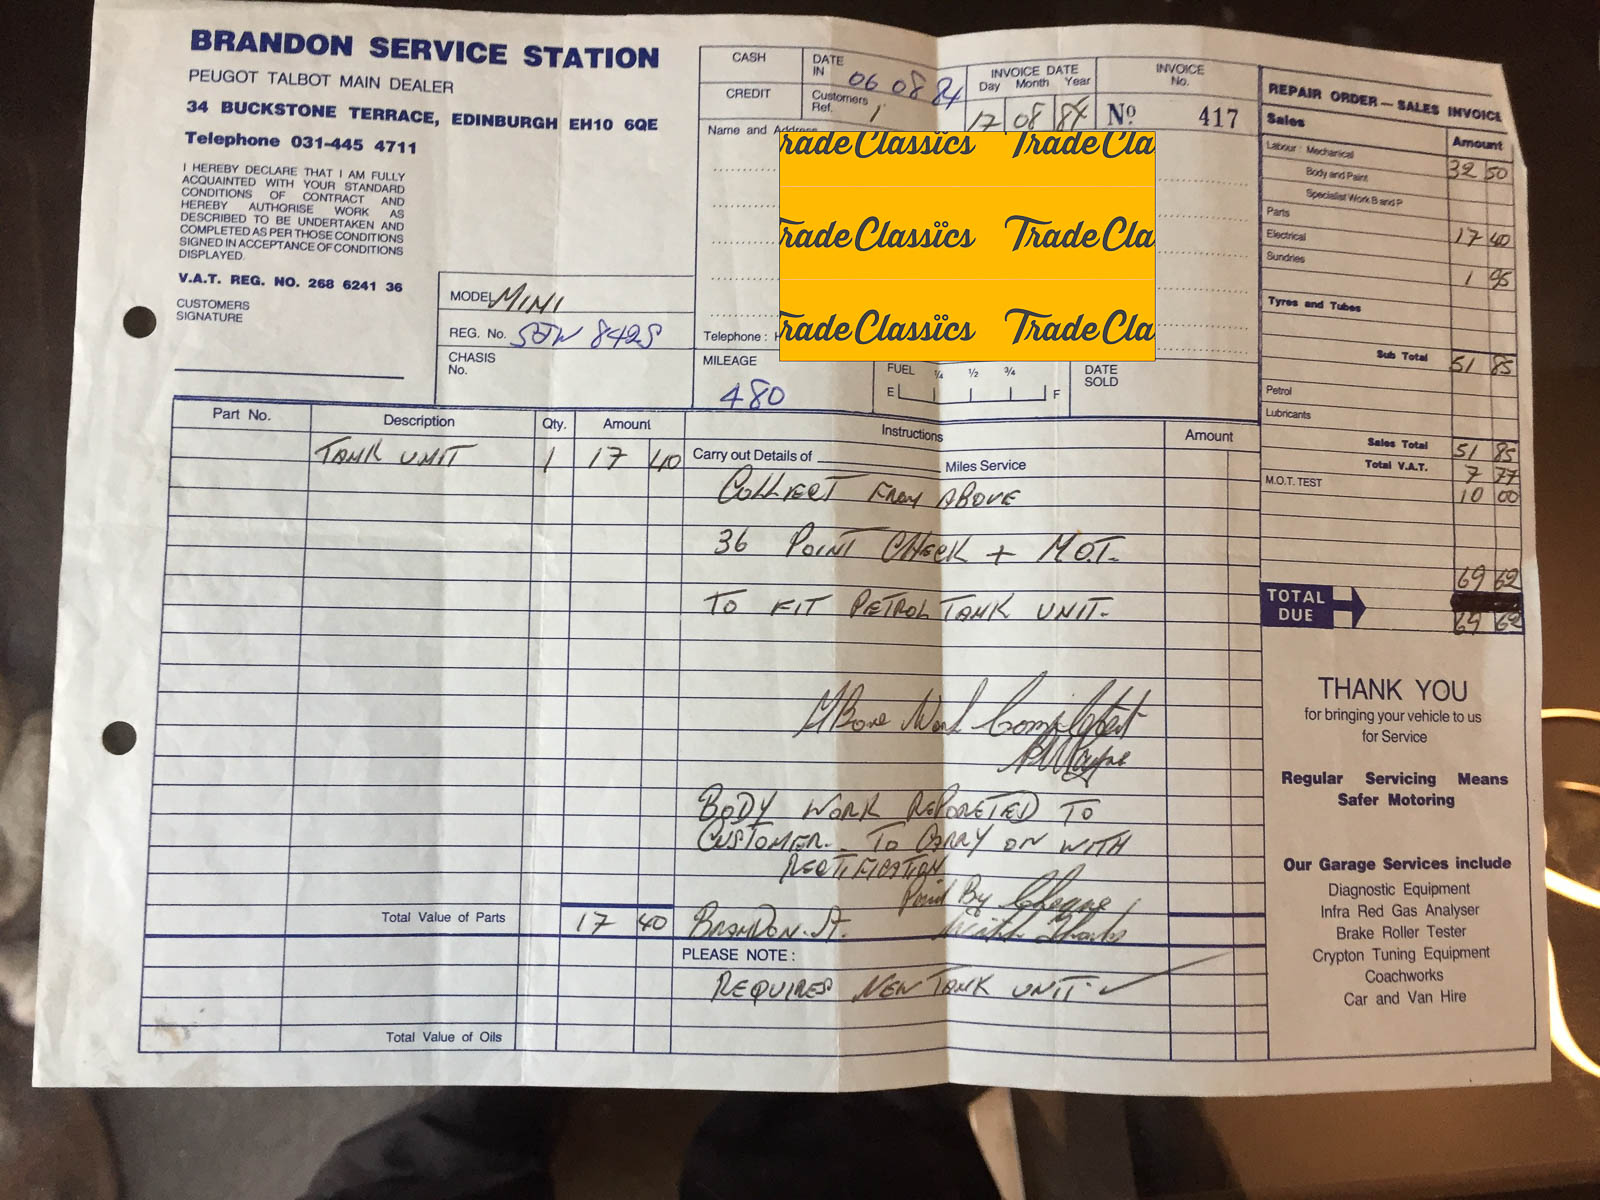 BRANDON SERVICE STATION
PEUGOT TALBOT MAIN DEALER
34 BUCKSTONE TERRACE, EDINBURGH EH10 6QE
Telephone 031-445 4711
I HEREBY DECLARE THAT I AM FULLY
ACQUAINTED WITH YOUR STANDARD
CONDITIONS OF CONTRACT AND
HEREBY AUTHORISE WORK AS
DESCRIBED TO BE UNDERTAKEN AND
COMPLETED AS PER THOSE CONDITIONS
SIGNED IN ACCEPTANCE OF CONDITIONS
DISPLAYED.
V.A.T. REG. NO. 268 6241 36
CUSTOMERS
SIGNATURE
MODEL MINI
REG. No. SJW 842S
CHASIS
No.
CASH
CREDIT
DATE
IN 06 08 84
Customers
Ref. 1
INVOICE DATE
Day Month Year
17 08 84
INVOICE
No.
No 417
Name and Address
rade Classics Trade Cla
rade Classics Trade Cla
rade Classics Trade Cla
Telephone : H
MILEAGE
480
FUEL 1/4 1/2 3/4
E F
DATE
SOLD
REPAIR ORDER – SALES INVOICE
Sales Amount
Labour : Mechanical 32 50
Body and Paint
Specialist Work B and P
Parts
Electrical 17 40
Sundries
1 95
Tyres and Tubes
Sub Total 51 85
Petrol
Lubricants
Sales Total 51 85
Total V.A.T. 7 77
M.O.T. TEST 10 00
69 62
TOTAL
DUE
69 62
Part No. Description Qty. Amount Instructions Amount
TANK UNIT 1 17 40
Carry out Details of Miles Service
COLLECT FROM ABOVE
36 POINT CHECK + M.O.T.
TO FIT PETROL TANK UNIT.
Above Work Completed
BODY WORK REPORETED TO
CUSTOMER. TO CARRY ON WITH
RECTIFICATION
Paid By Cheque
Total Value of Parts 17 40
BRANDON. ST. With Thanks
PLEASE NOTE :
REQUIRES NEW TANK UNIT. ✓
Total Value of Oils
THANK YOU
for bringing your vehicle to us
for Service
Regular Servicing Means
Safer Motoring
Our Garage Services include
Diagnostic Equipment
Infra Red Gas Analyser
Brake Roller Tester
Crypton Tuning Equipment
Coachworks
Car and Van Hire